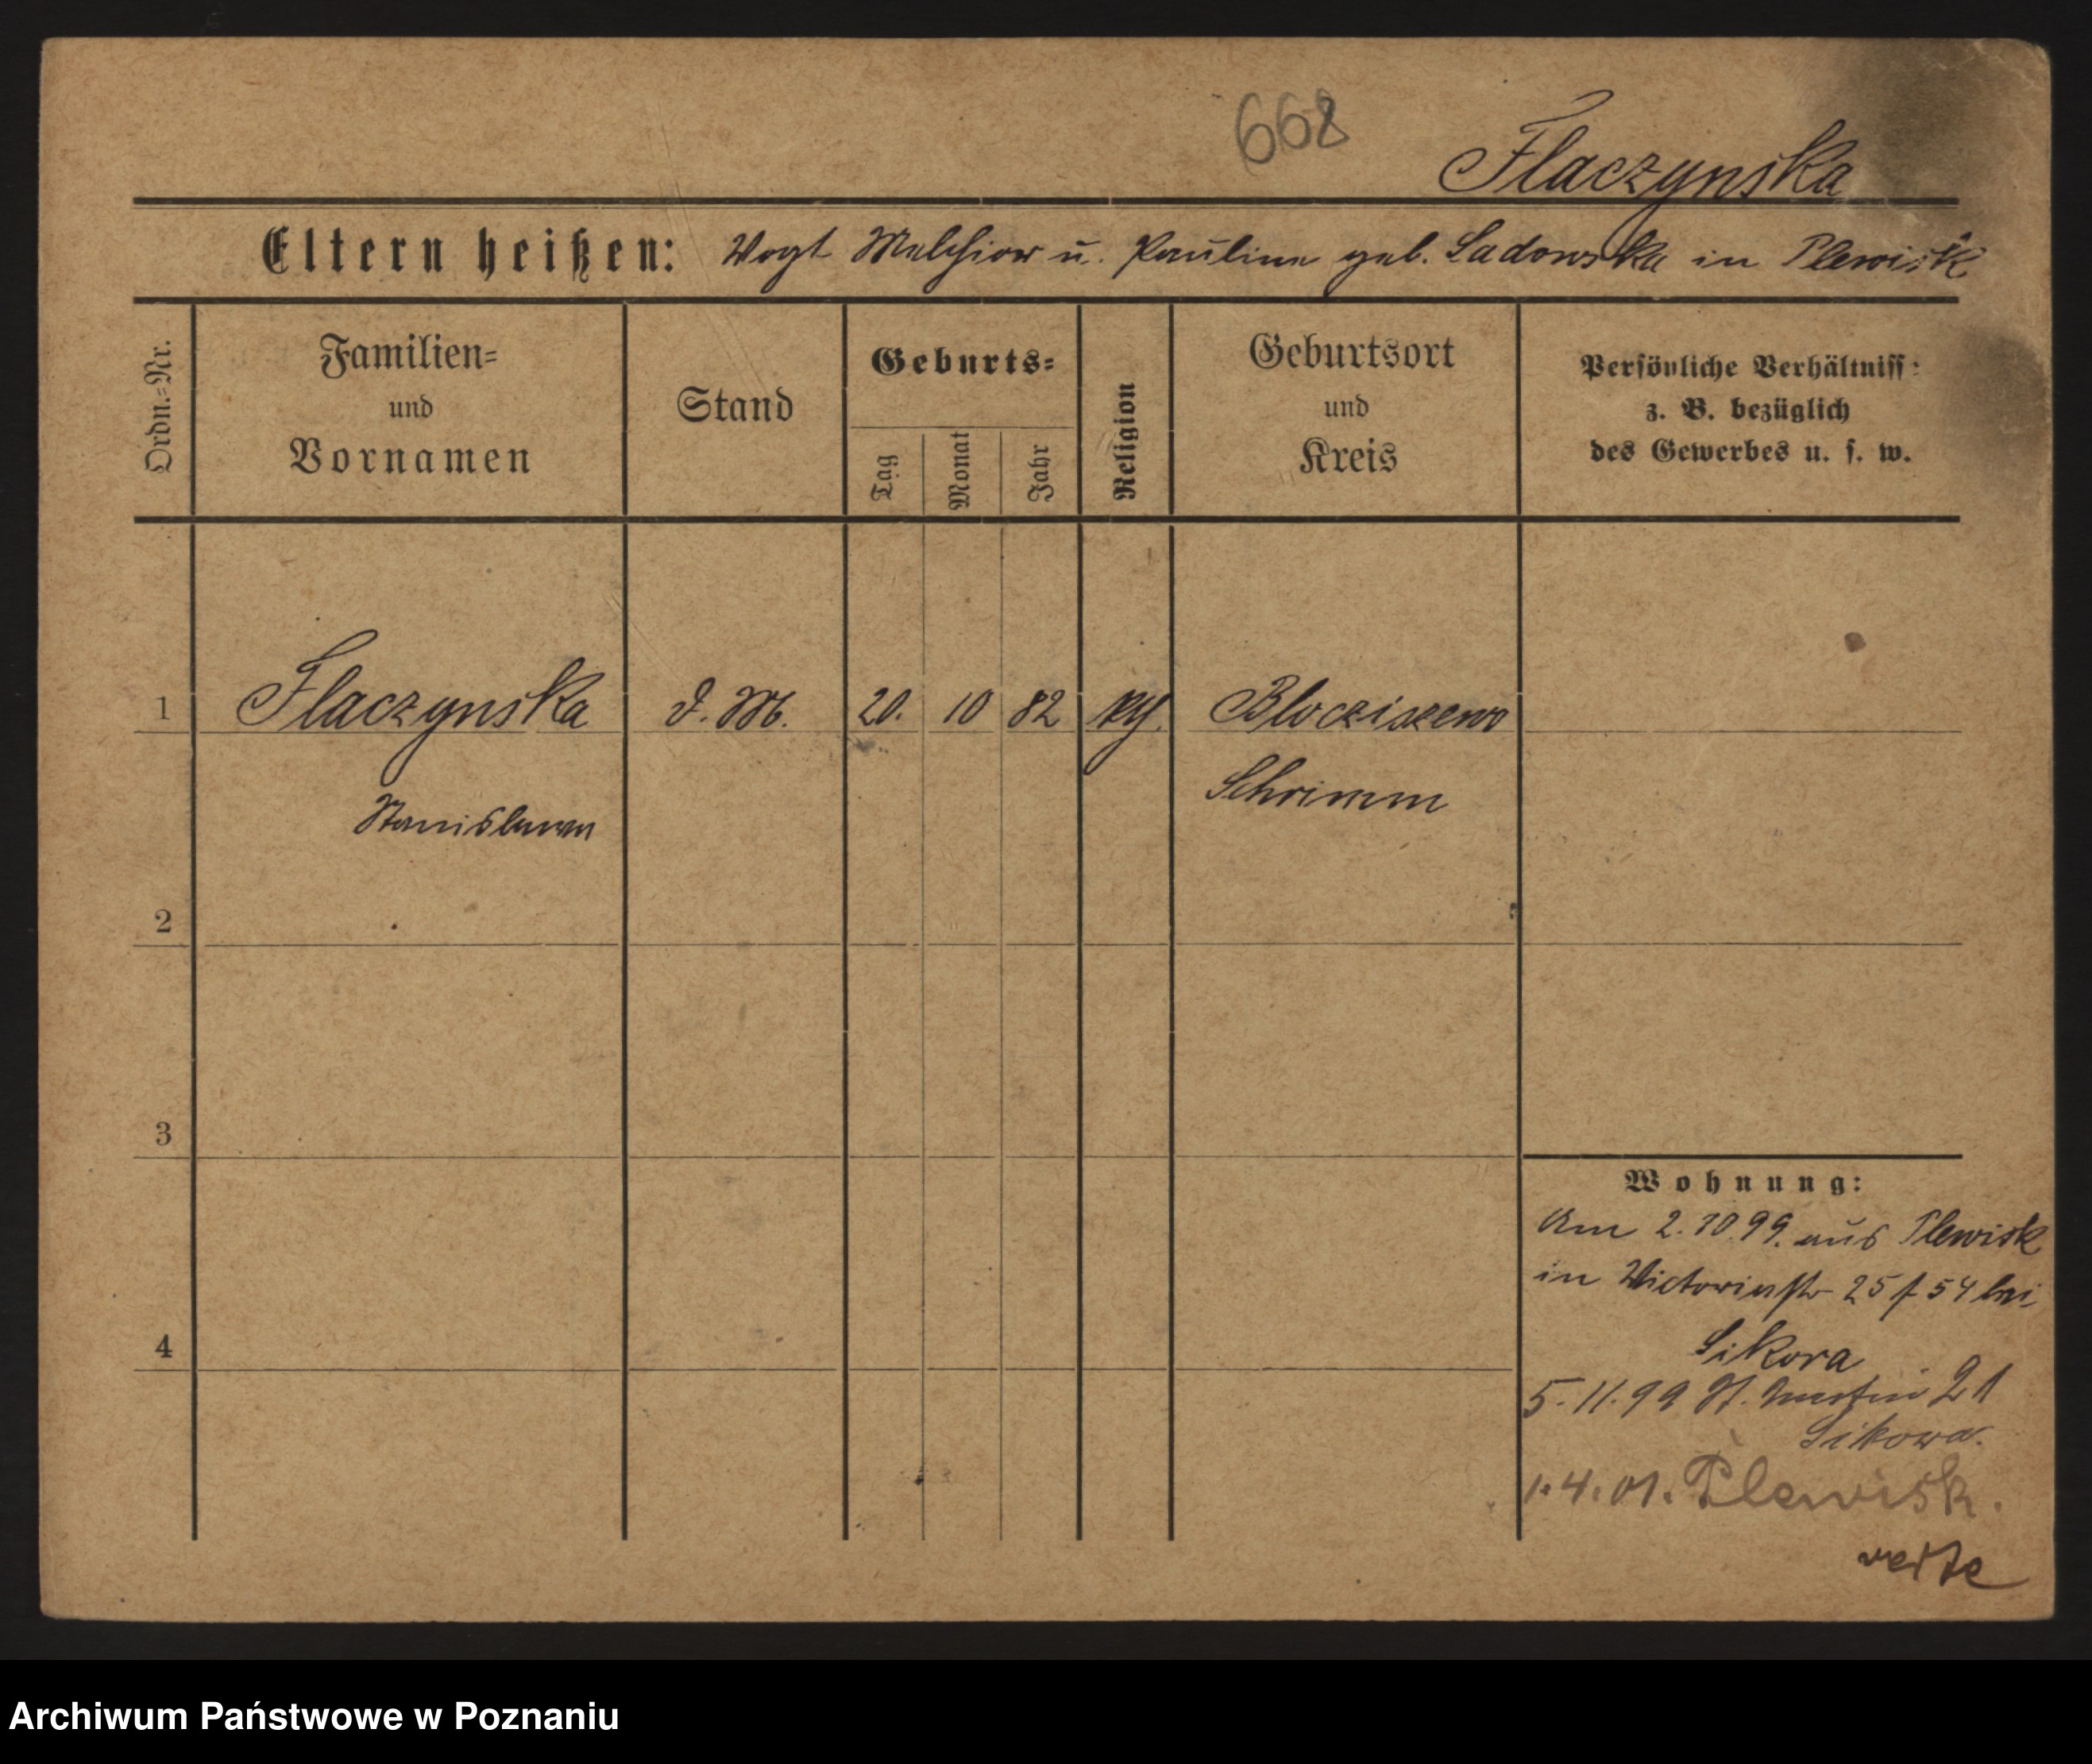 668
Flaczynska
Eltern heißen: Vogt Melchior u. Pauline geb. Sadowska in Plewisk
Ordn.=Nr.
Familien=
und
Vornamen
Stand
Geburts=
Tag
Monat
Jahr
Religion
Geburtsort
und
Kreis
Persönliche Verhältniss:
z. B. bezüglich
des Gewerbes u. s. w.
1 Flaczynska d. M. 20. 10 82 Blocziszewo
Stanislawa Schrimm
2
3
4
Wohnung:
Am 2.10.99. aus Plewisk
in Victoriastr 25 f 54 bei
Sikora
5.11.99 St. Martin 21
Sikora.
1.4.01. Plewisk.
verte
Archiwum Państwowe w Poznaniu